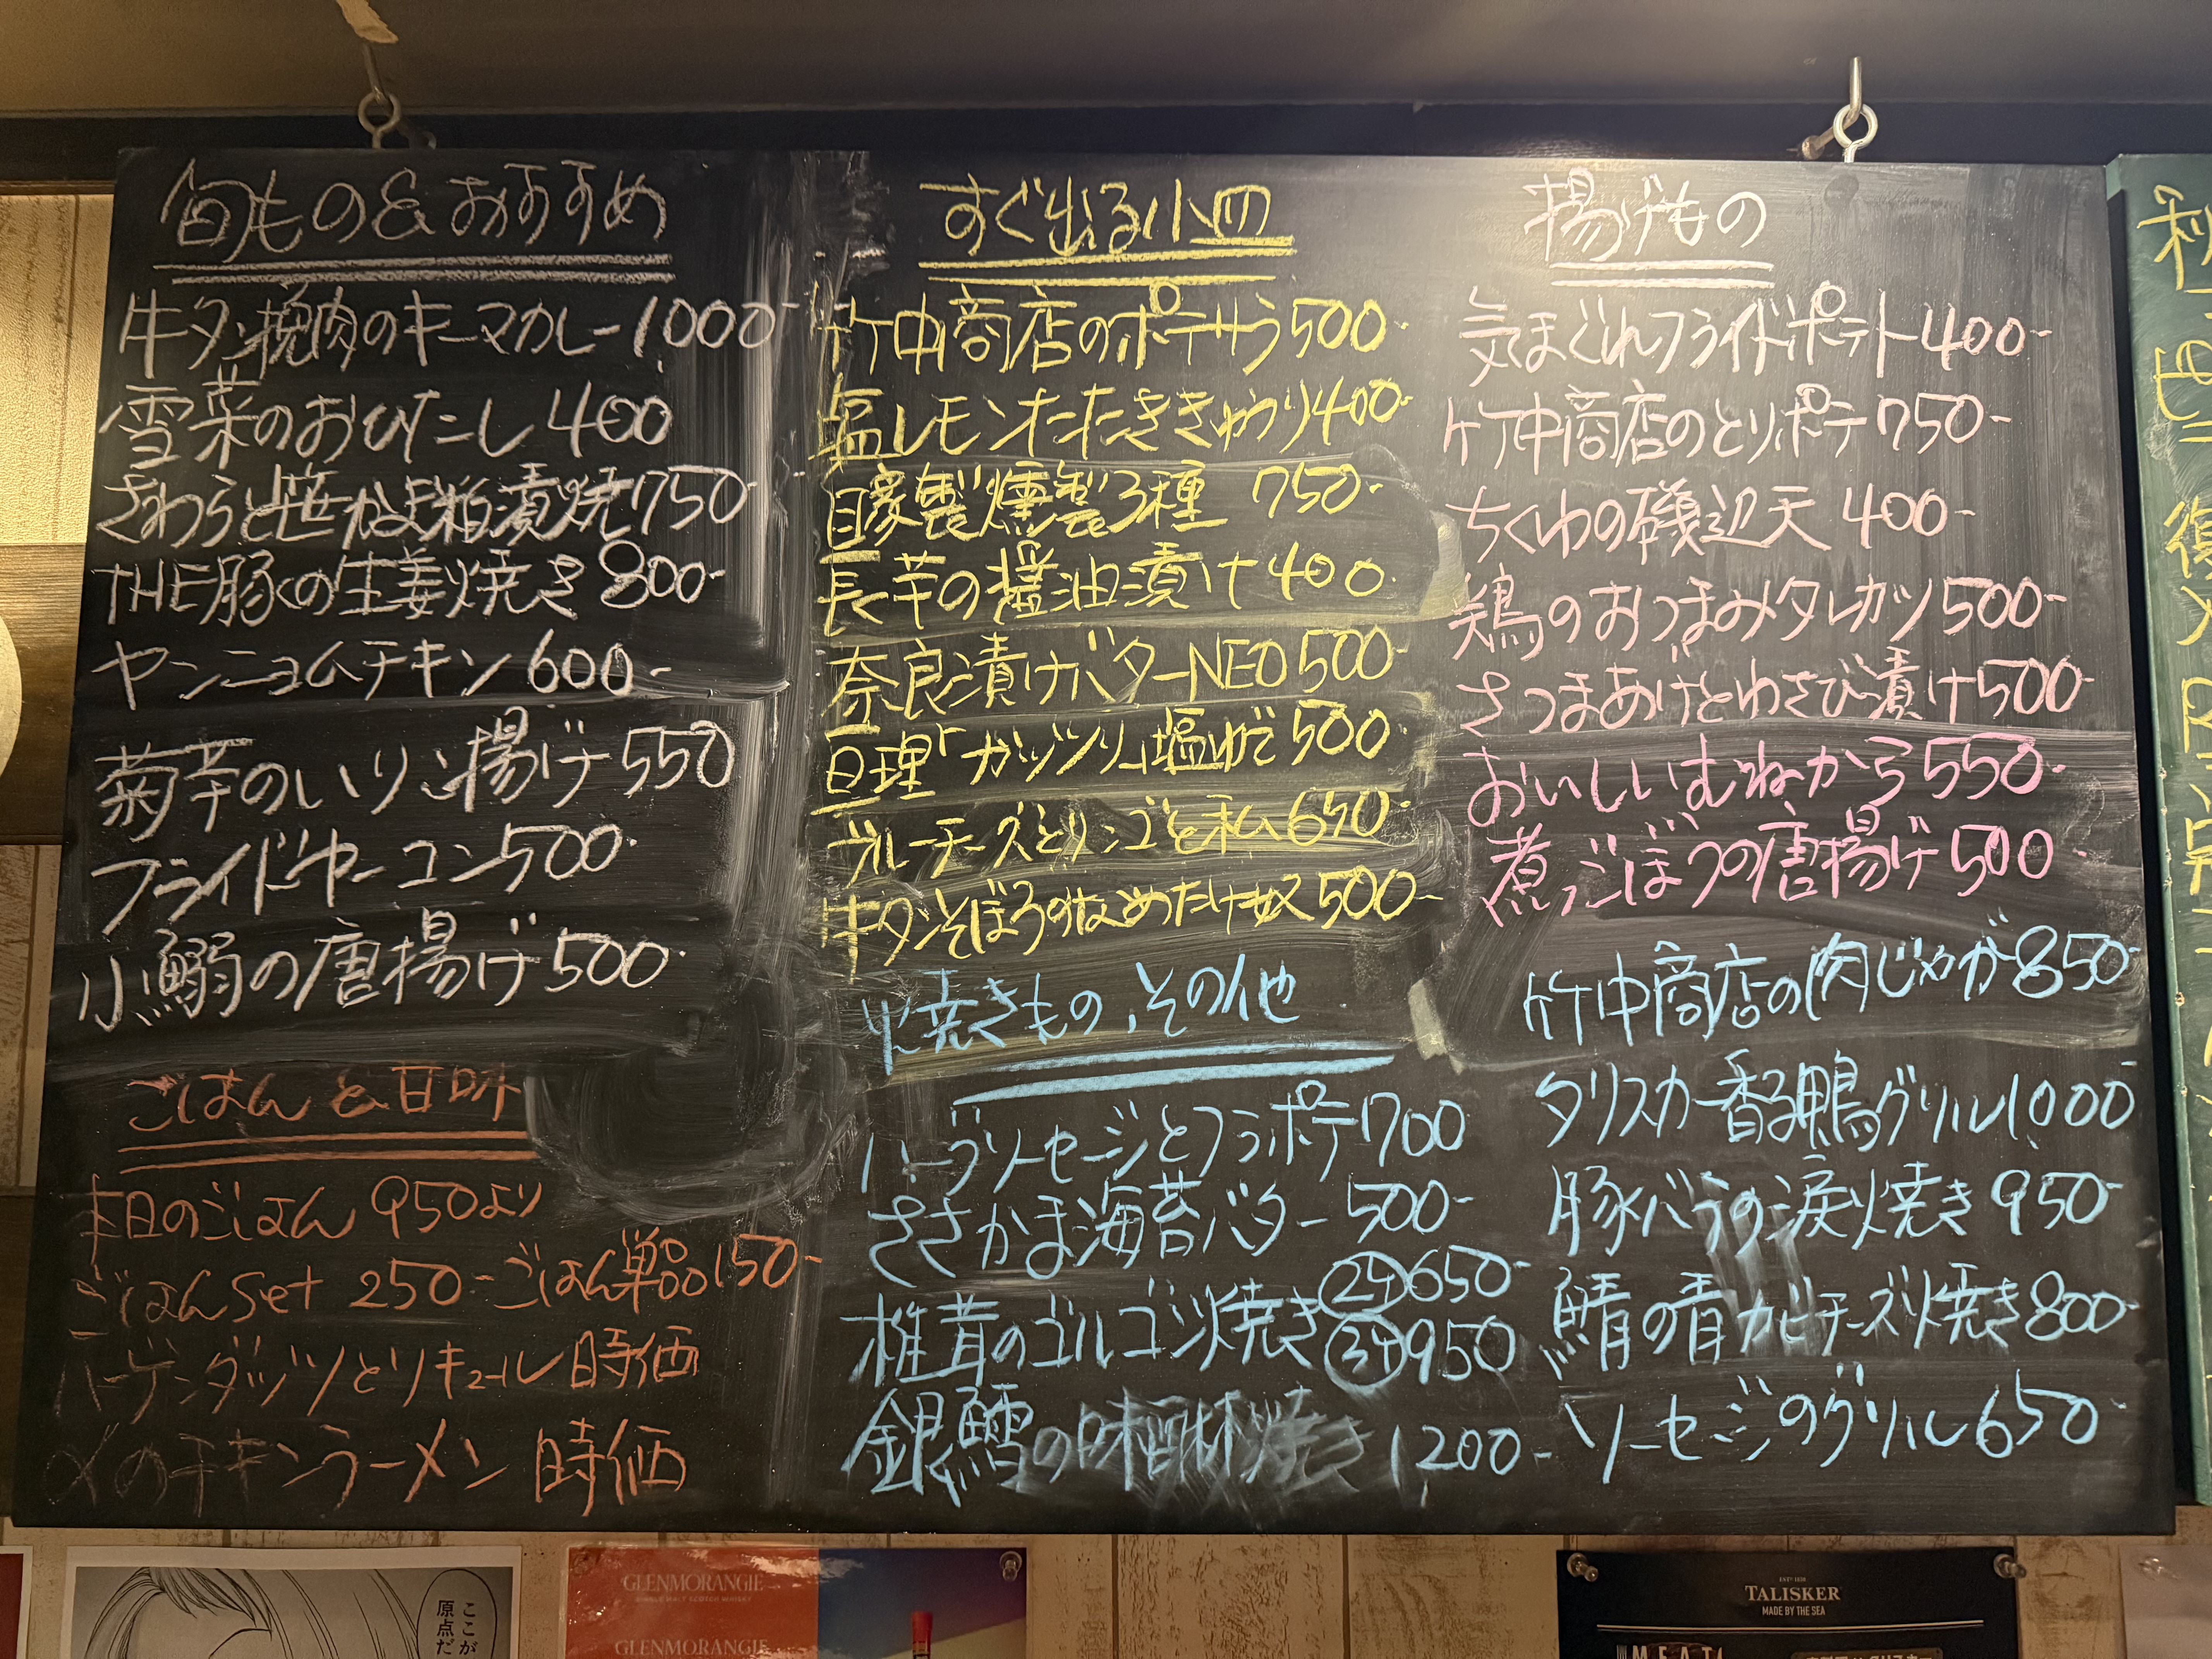 旬もの&おすすめ
牛タン挽肉のキーマカレー1000-
雪菜のおひたし400
さわらと笹かま粕漬焼750-
THE豚くの生姜焼き800-
ヤンニョムチキン600-
菊芋のいりこ揚げ550
フライドヤーコン500-
小鰯の唐揚げ500-
ごはんと甘味
本日のごはん 950より
ごはんset 250-ごはん単品150-
ハーゲンダッツとリキュール時価
〆のチキンラーメン 時価
すぐ出る小皿
竹中商店のポテサラ500-
塩レモンたたききゅうり400-
自家製燻製3種 750-
長芋の醤油漬け400
奈良漬けバターNEO500
亘理「ガッツリ」塩ゆで500
ブルーチーズとリンゴと私650-
牛タンそぼろのなめたけ奴500-
焼きもの、その他
ハーブソーセージとフラポテ700
ささかま海苔バター 500-
椎茸のゴルゴン焼き 2ケ650-
3ケ950
銀鱈の味醂焼き 1200-
揚げもの
気まぐれフライドポテト400-
竹中商店のとりポテ750-
ちくわの磯辺天 400-
鶏のおつまみタレカツ500-
さつまあげとわさび漬け500-
おいしいむねから550-
煮ごぼうの唐揚げ500-
竹中商店の肉じゃが850-
タリスカー香る鴨グリル1000
豚バラの涙焼き950-
鯖の青カビチーズ焼き800-
ソーセージのグリル650-
ここが
原点だ
GLENMORANGIE
SINGLE MALT SCOTCH WHISKY
GLENMORANGIE
ESTD 1830
TALISKER
MADE BY THE SEA
MEAT!